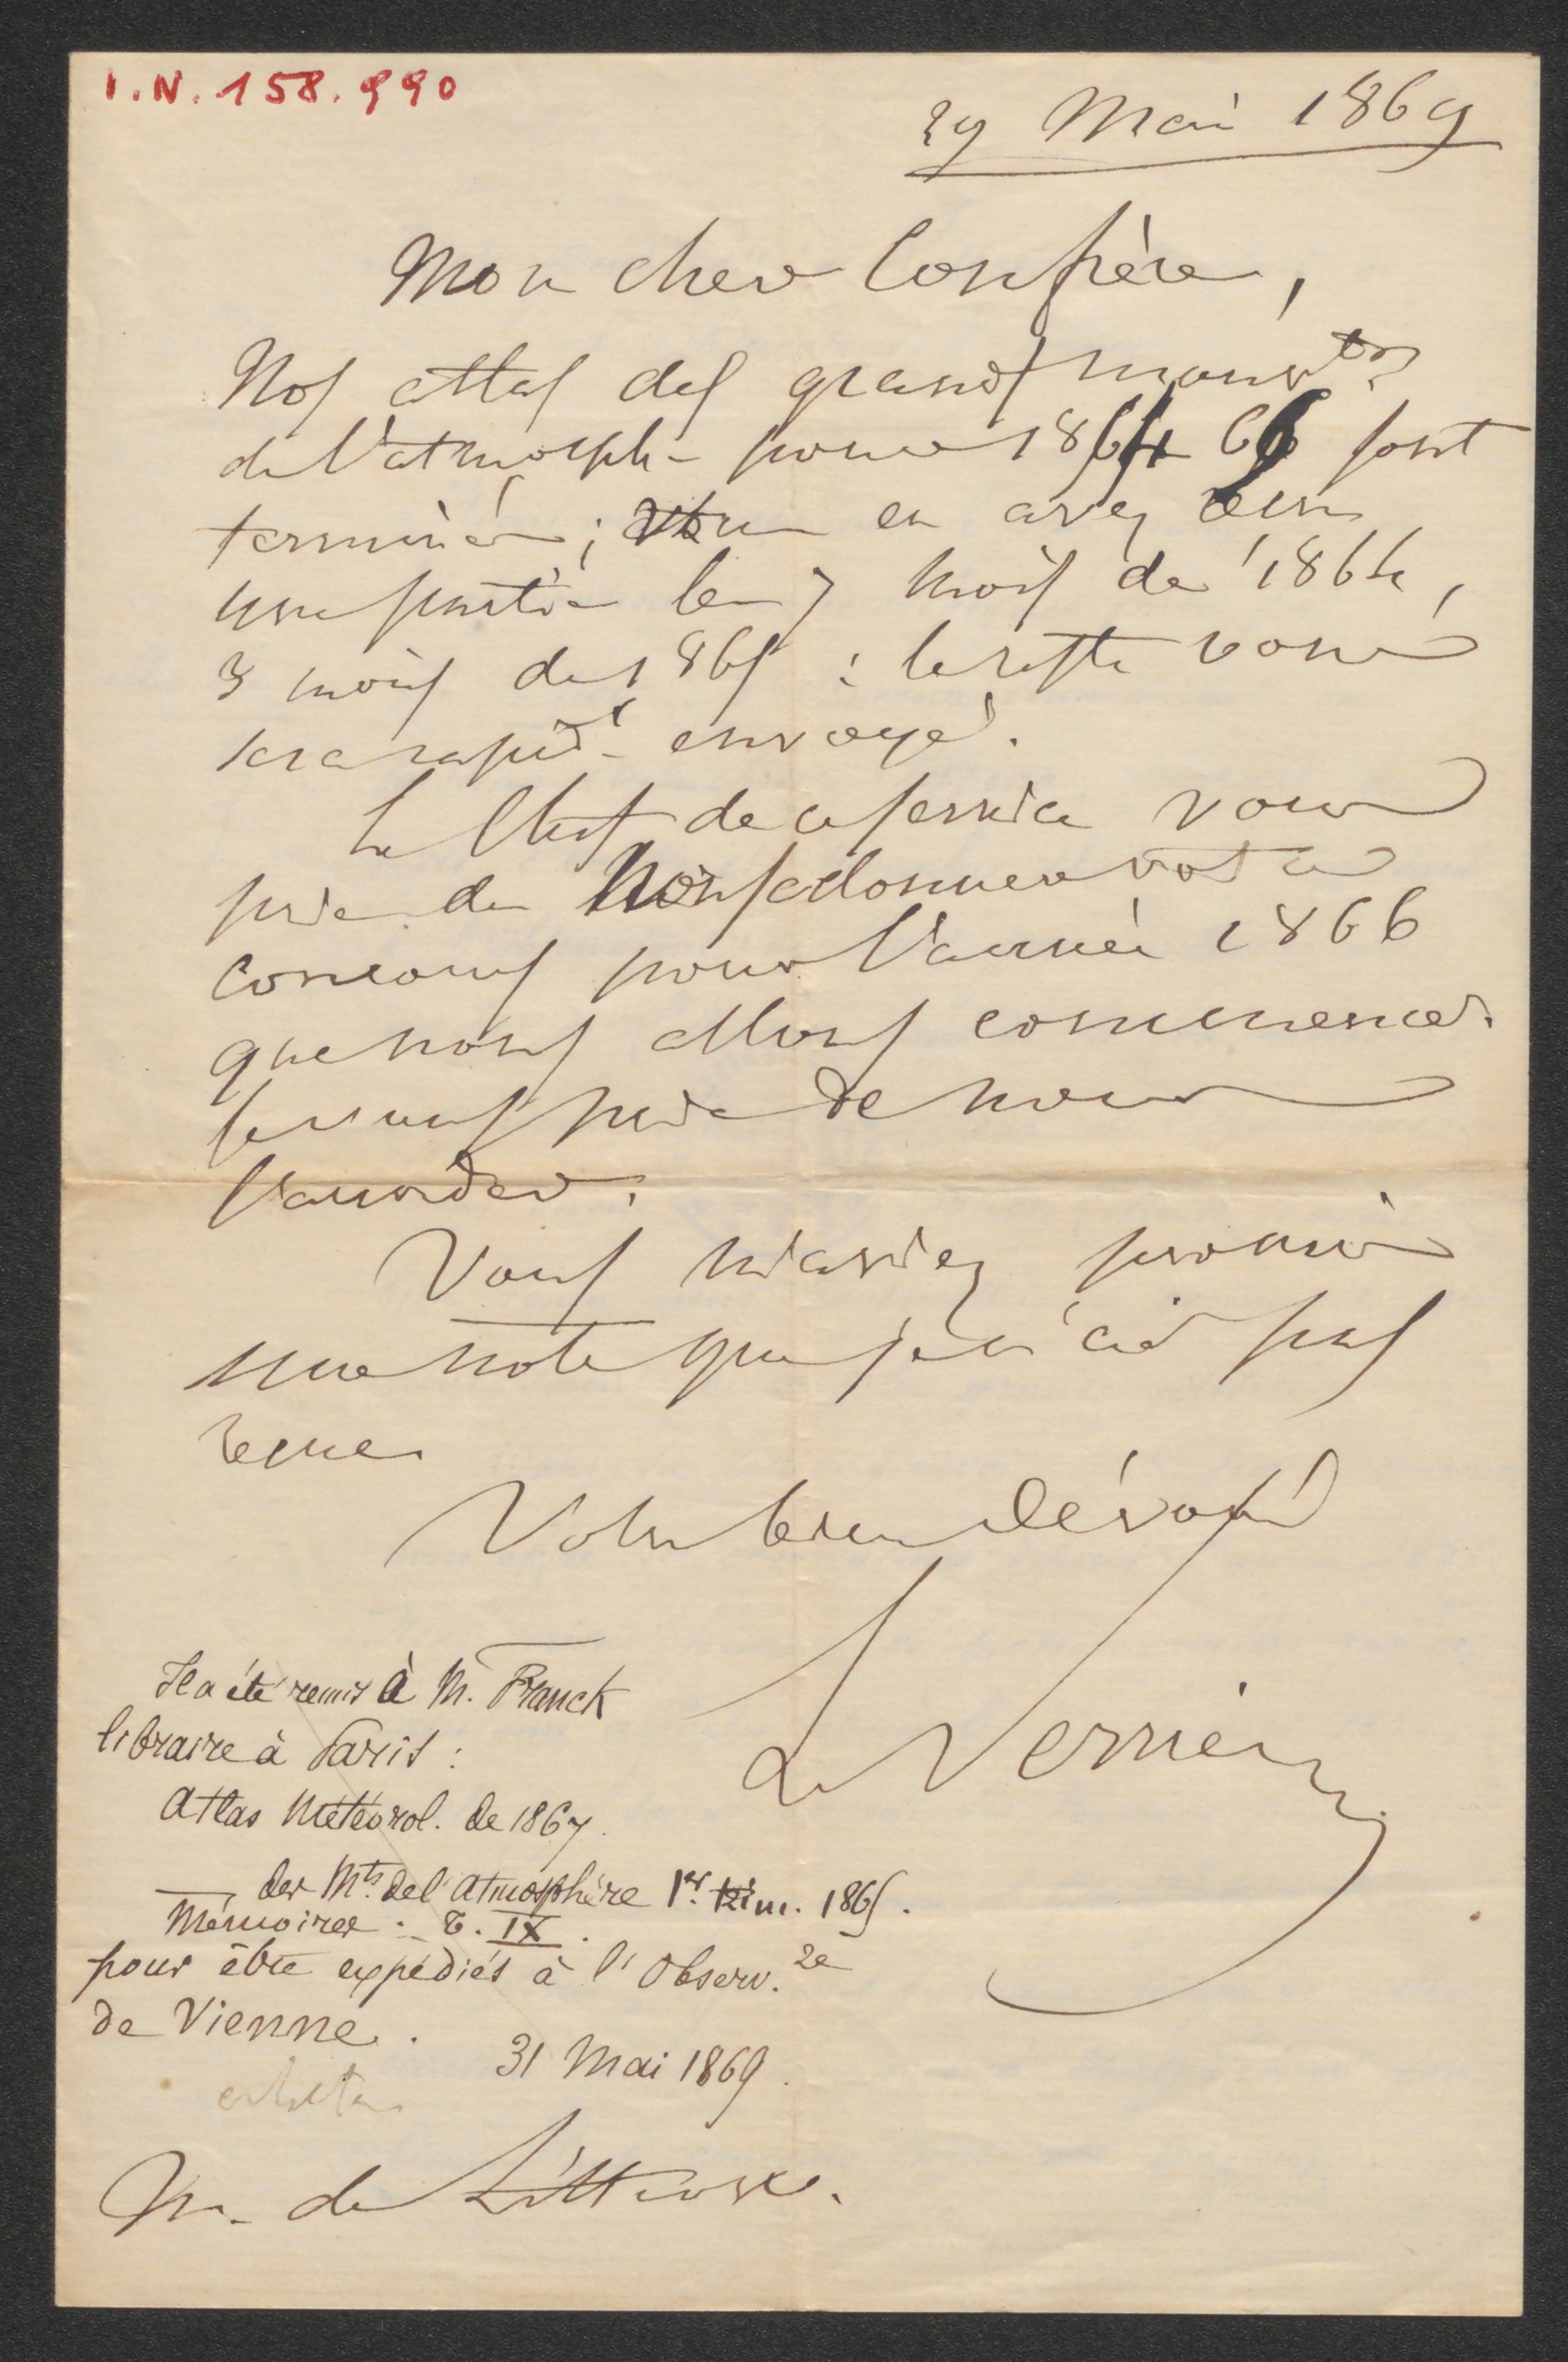 I.N. 158.990
29 Mai 1869
Mon cher Confrère,
Nos atlas des grands mouvts
de l'atmosph. pour 1864 65 sont
terminés; vous en avez reçu
une partie les 7 mois de 1864,
3 mois de 1865 : le reste vous
sera rapidt envoyé.
Le Chef de ce service vous
prie de nous donner votre
concours pour l'année 1866
que nous allons commencer.
Je vous prie de nous
l'accorder.
Vous m'aviez promis
une note que je n'ai pas
reçue.
Votre bien dévoué
Le Verrier
Il a été remis à M. Franck
libraire à Paris :
Atlas Météorol. de 1867.
— des Mts de l'atmosphère 1er trim. 1865.
Mémoires. T. IX.
pour être expédiés à l'Observ.re
de Vienne.
31 Mai 1869.
M. de Littrow.